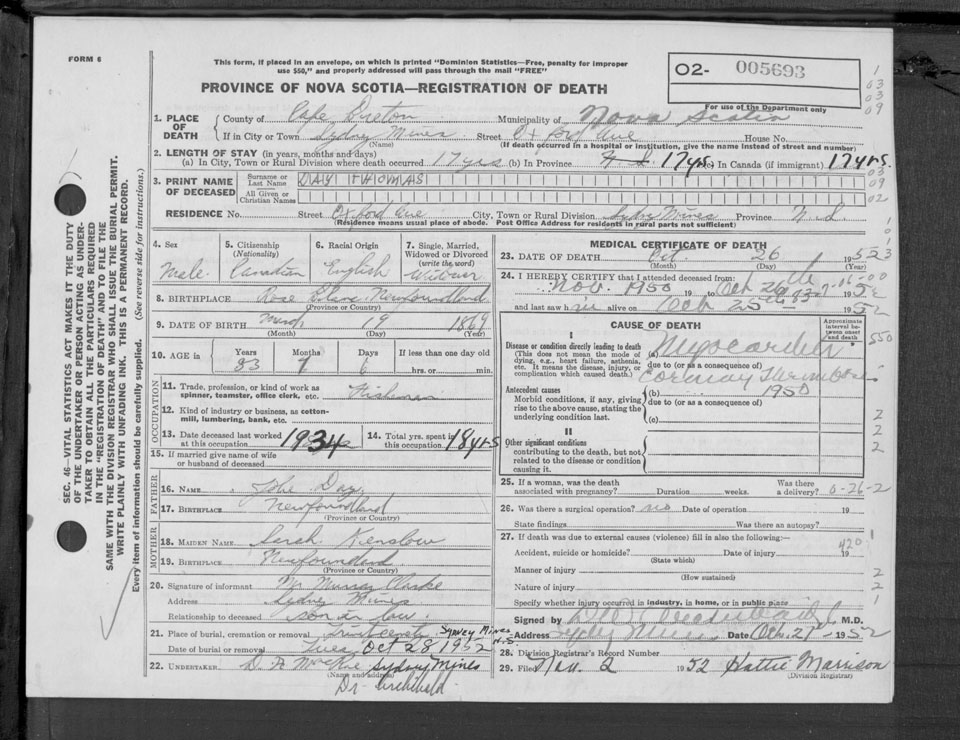 FORM 6
This form, if placed in an envelope, on which is printed "Dominion Statistics—Free, penalty for improper
use $50," and properly addressed will pass through the mail "FREE"
O2- 005693
PROVINCE OF NOVA SCOTIA—REGISTRATION OF DEATH
For use of the Department only
1. PLACE OF DEATH County of Cape Breton Municipality of Nova Scotia
If in City or Town Sydney Mines Street Oxford Ave House No.
(Name) (If death occurred in a hospital or institution, give the name instead of street and number)
2. LENGTH OF STAY (in years, months and days)
(a) In City, Town or Rural Division where death occurred 17 yrs (b) In Province 17 yrs. In Canada (if immigrant) 17 yrs.
3. PRINT NAME OF DECEASED Surname or Last Name DAY THOMAS
All Given or Christian Names
RESIDENCE No. Street Oxford Ave City, Town or Rural Division Sydney Mines Province N.S.
(Residence means usual place of abode. Post Office Address for residents in rural parts not sufficient)
4. Sex Male
5. Citizenship (Nationality) Canadian
6. Racial Origin English
7. Single, Married, Widowed or Divorced (write the word) Widower
8. BIRTHPLACE Rose Blanc Newfoundland
(Province or Country)
9. DATE OF BIRTH 19 1869
(Month) (Day) (Year)
10. AGE in Years Months Days If less than one day old
83 7 6 hrs. or min.
OCCUPATION
11. Trade, profession, or kind of work as spinner, teamster, office clerk, etc. Fisherman
12. Kind of industry or business, as cotton-mill, lumbering, bank, etc.
13. Date deceased last worked at this occupation 1934
14. Total yrs. spent in this occupation 48 yrs
15. If married give name of wife or husband of deceased
FATHER
16. NAME John Day
17. BIRTHPLACE Newfoundland
(Province or Country)
MOTHER
18. MAIDEN NAME Sarah
19. BIRTHPLACE Newfoundland
(Province or Country)
20. Signature of informant Mr Murray Clarke
Address Sydney Mines
Relationship to deceased Son in law
21. Place of burial, cremation or removal Sydney Mines N.S.
Date of burial or removal Tues Oct 28 1952
22. UNDERTAKER Sydney Mines
(Name and address)
Dr Archibald
MEDICAL CERTIFICATE OF DEATH
23. DATE OF DEATH Oct. 26 1952
(Month) (Day) (Year)
24. I HEREBY CERTIFY that I attended deceased from:
Nov. 1950 19 to Oct 26 1952
and last saw h alive on Oct 25 1952
CAUSE OF DEATH
Approximate interval between onset and death
I
Disease or condition directly leading to death
(This does not mean the mode of dying, e.g., heart failure, asthenia, etc. It means the disease, injury, or complication which caused death.)
(a)
due to (or as a consequence of)
Antecedent causes
Morbid conditions, if any, giving rise to the above cause, stating the underlying condition last.
(b) 1950
due to (or as a consequence of)
(c)
II
Other significant conditions
contributing to the death, but not related to the disease or condition causing it.
25. If a woman, was the death associated with pregnancy? Duration weeks. Was there a delivery? 0-26-2
26. Was there a surgical operation? no Date of operation 19
State findings Was there an autopsy?
27. If death was due to external causes (violence) fill in also the following:—
Accident, suicide or homicide? Date of injury 19
(State which)
420.1
Manner of injury
(How sustained)
Nature of injury
Specify whether injury occurred in industry, in home, or in public place
Signed by M.D.
Address Sydney Mines Date Oct. 27 1952
28. Division Registrar's Record Number
29. Filed Nov. 2 1952 Hattie Morrison
(Division Registrar)
SEC. 46—VITAL STATISTICS ACT MAKES IT THE DUTY
OF THE UNDERTAKER OR PERSON ACTING AS UNDER-
TAKER TO OBTAIN ALL THE PARTICULARS REQUIRED
IN THE "REGISTRATION OF DEATH" AND TO FILE THE
SAME WITH THE DIVISION REGISTRAR WHO SHALL ISSUE THE BURIAL PERMIT.
WRITE PLAINLY WITH UNFADING INK. THIS IS A PERMANENT RECORD.
Every item of information should be carefully supplied. (See reverse side for instructions.)